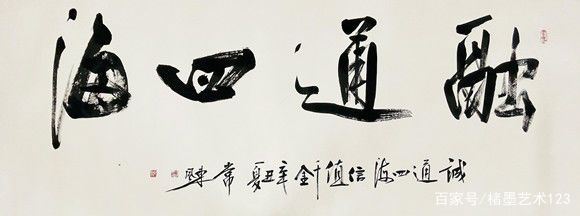 融通四海
誠通四海信值千金辛丑夏常
百家号/楮墨艺术123